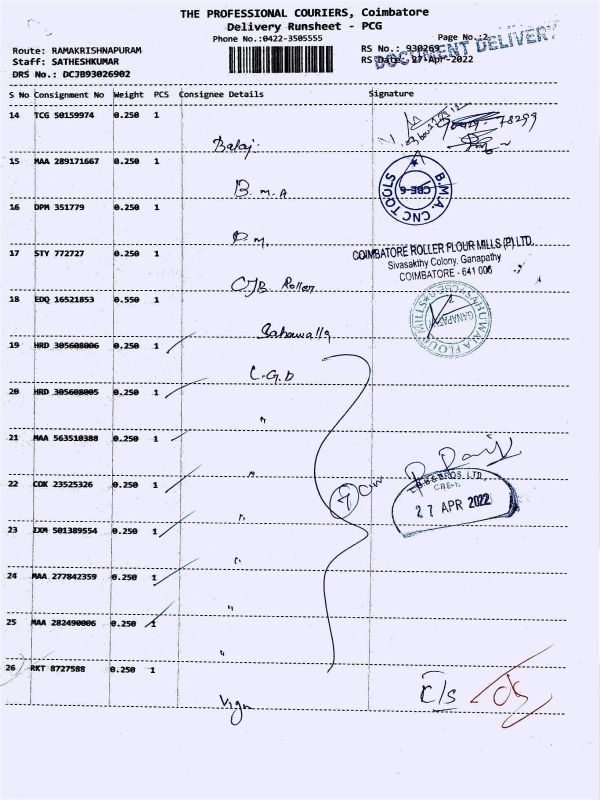 THE PROFESSIONAL COURIERS, Coimbatore
Delivery Runsheet - PCG
Phone No.:0422-3505555
Page No.:2
DOCUMENT DELIVERY
Route: RAMAKRISHNAPURAM
RS No.: 930269
Staff: SATHESHKUMAR
RS Date: 27-Apr-2022
DRS No.: DCJB93026902
S No Consignment No Weight PCS Consignee Details Signature
14 TCG 50159974 0.250 1
Balaj.
78299
15 MAA 289171667 0.250 1
B.M.A
B.M.A. CNC TOOLS
CBE-6
16 DPM 351779 0.250 1
D.M.
17 STY 772727 0.250 1
CJB Roller
COIMBATORE ROLLER FLOUR MILLS (P) LTD.
Sivasakthy Colony, Ganapathy
COIMBATORE - 641 006
18 EDQ 16521853 0.550 1
Sahuwalla
SAHUWALA FLOUR MILLS
GANAPATHY
19 HRD 305608006 0.250 1
L.G.B
20 HRD 305608005 0.250 1
"
21 MAA 563510388 0.250 1
"
22 COK 23525326 0.250 1
"
7 Cov
BROS LTD,
CBE-6
27 APR 2022
23 IXM 501389554 0.250 1
"
24 MAA 277842359 0.250 1
"
25 MAA 282490006 0.250 1
"
26 RKT 8727588 0.250 1
Vign
C/S